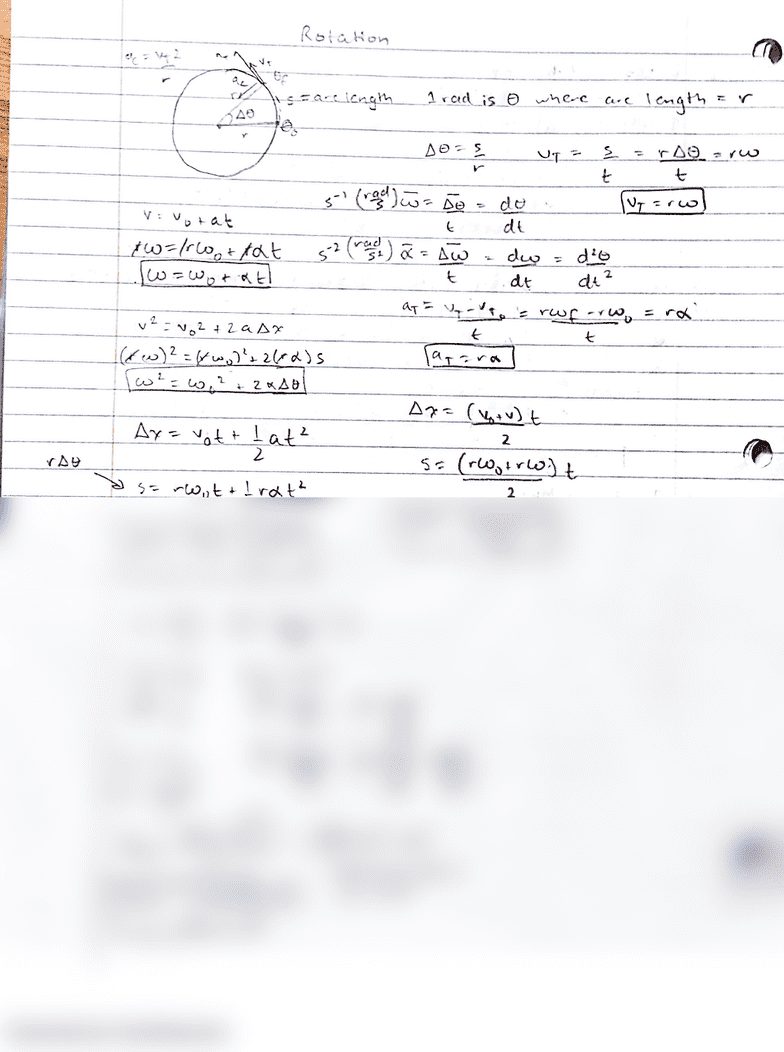 Rotation
a_c = v_T²/r
v_T
a_c
θ_f
Δθ
r
θ₀
s = arc length 1 rad is θ where arc length = r
Δθ = s/r v_T = s/t = rΔθ/t = rω
s⁻¹ (rad/s) ω̅ = Δθ/t = dθ/dt v_T = rω
v = v₀ + at
rω = rω₀ + rαt s⁻² (rad/s²) α̅ = Δω/t = dω/dt = d²θ/dt²
ω = ω₀ + αt
a_T = v_T - v_T₀/t = rω_f - rω₀/t = rα
v² = v₀² + 2aΔx
(rω)² = (rω₀)² + 2(rα)s a_T = rα
ω² = ω₀² + 2αΔθ
Δx = (v₀+v)t/2
Δx = v₀t + 1/2 at²
rΔθ s = (rω₀+rω)t/2
s = rω₀t + 1rαt²